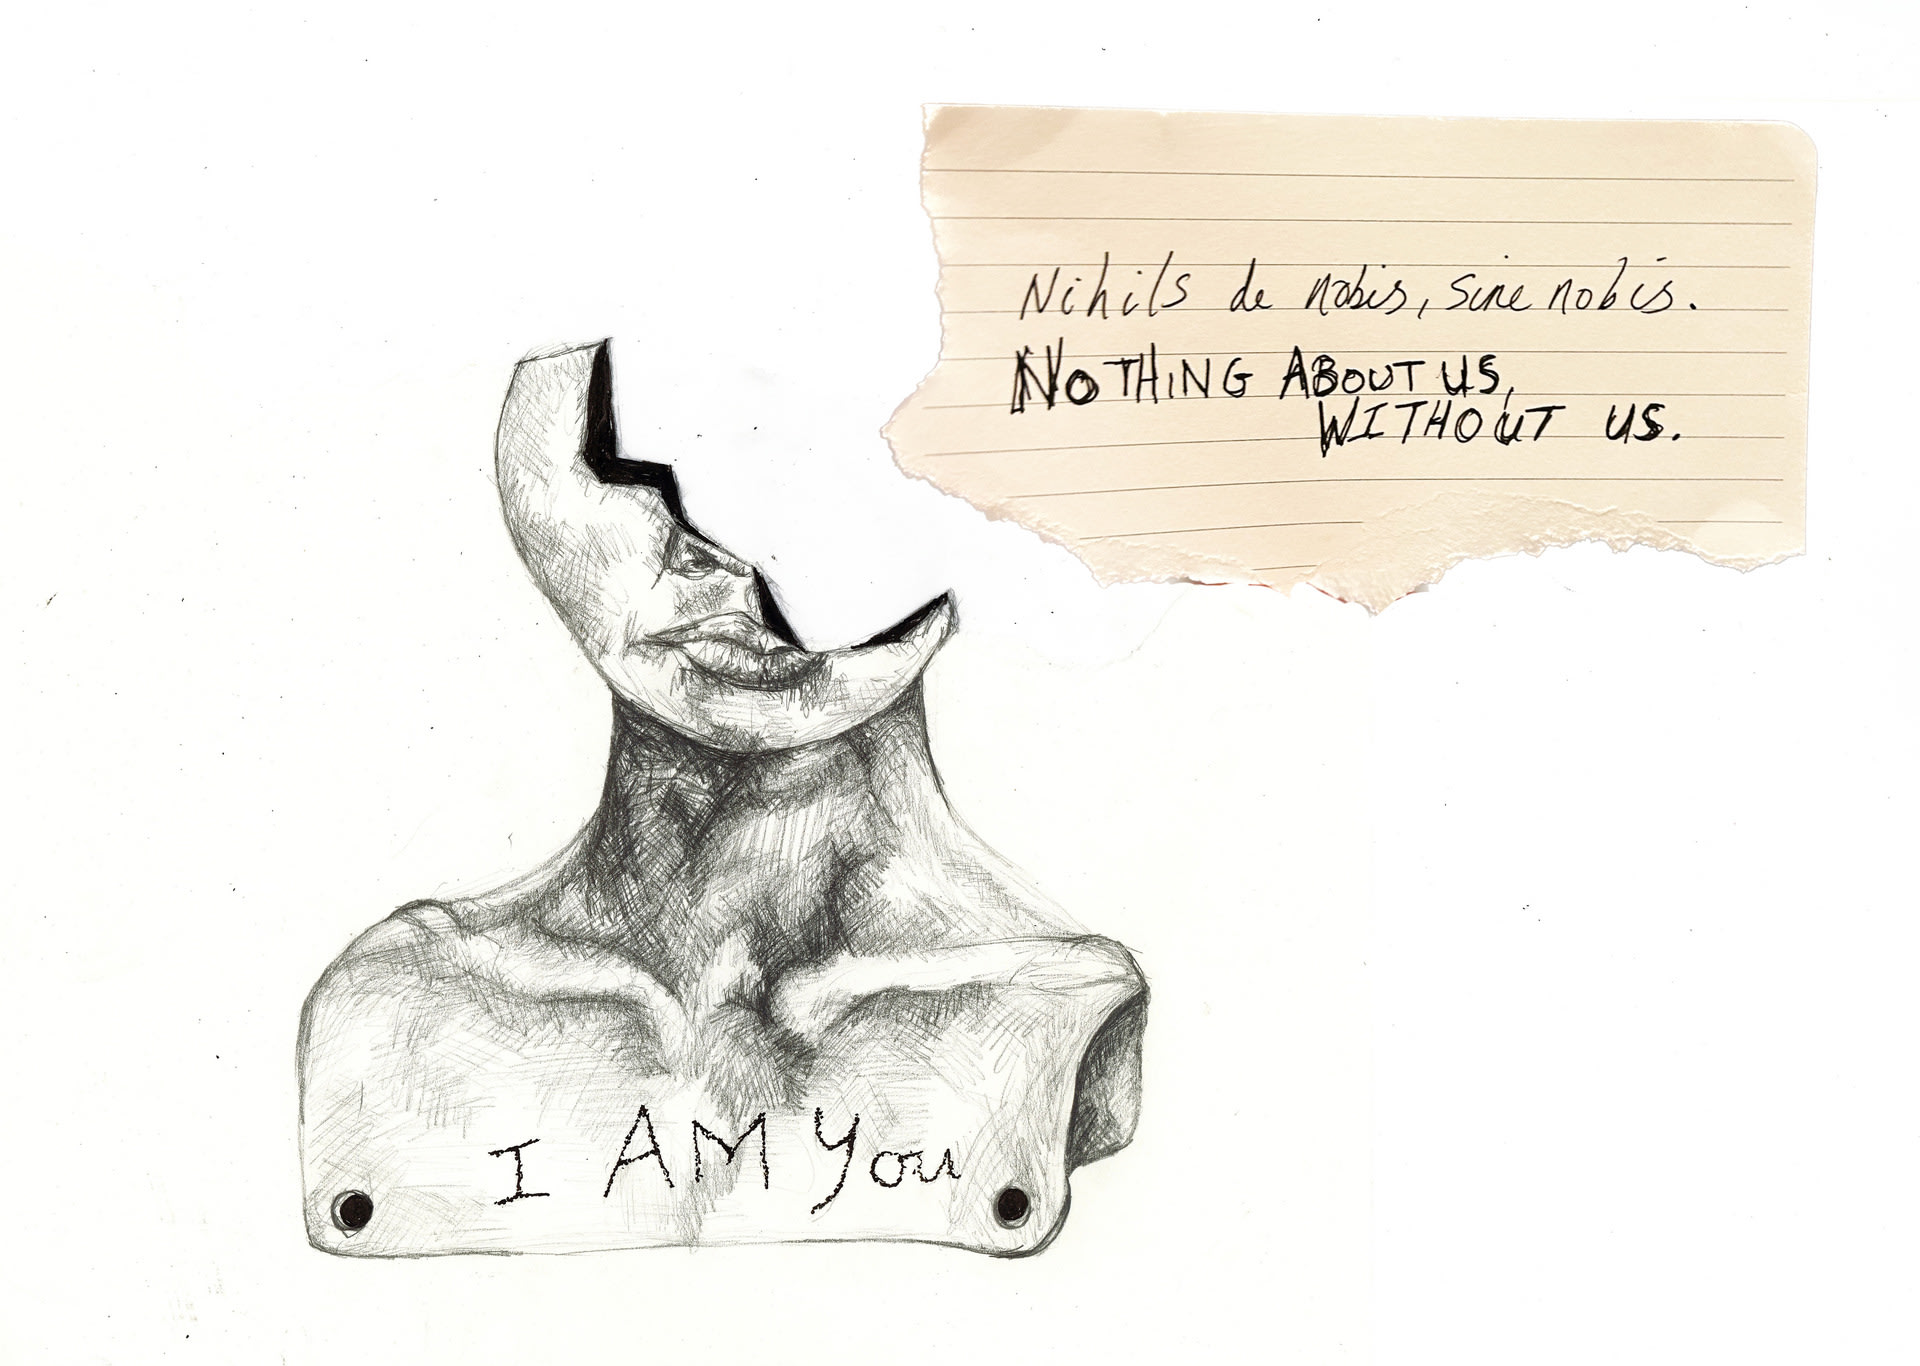 Nihils de nobis, sine nobis.
NOTHING ABOUT US,
WITHOUT US.
I AM You